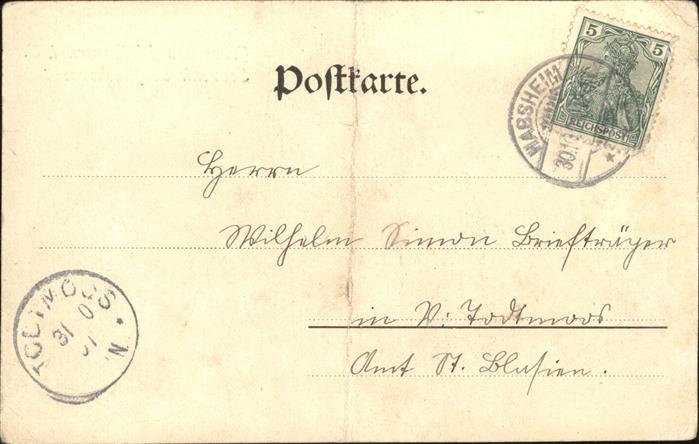 Postkarte.
5 5
REICHSPOST
HABSHEIM
30.1
Herrn
Wilhelm Simon Briefträger
in V. Todtmoos
Amt St. Blasien.
TODTMOOS * N.
31 0